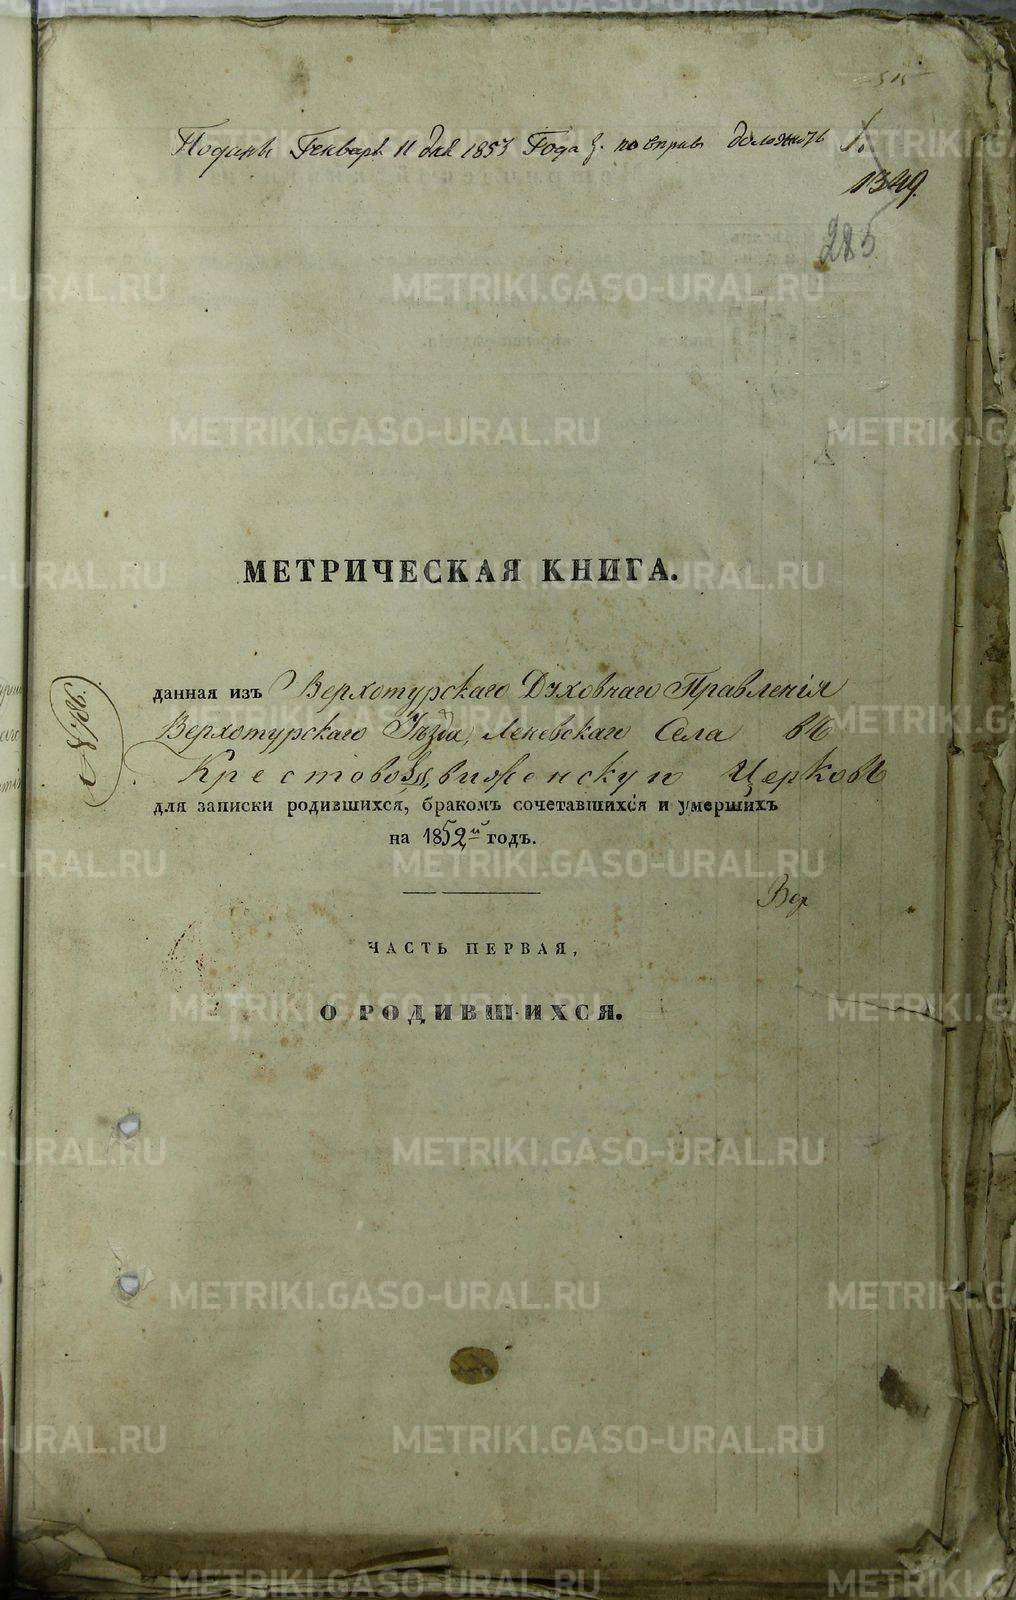 515
Поданы Генваря 11 дня 1853 Года
1349.
285
МЕТРИЧЕСКАЯ КНИГА.
№ 786.
данная изъ Верхотурскаго Духовнаго Правленія
Верхотурскаго Уѣзда, Леневскаго Села въ
Крестовоздвиженскую Церковь
для записки родившихся, бракомъ сочетавшихся и умершихъ
на 1852й годъ.
Вер
ЧАСТЬ ПЕРВАЯ,
О РОДИВШИХСЯ.
METRIKI.GASO-URAL.RU